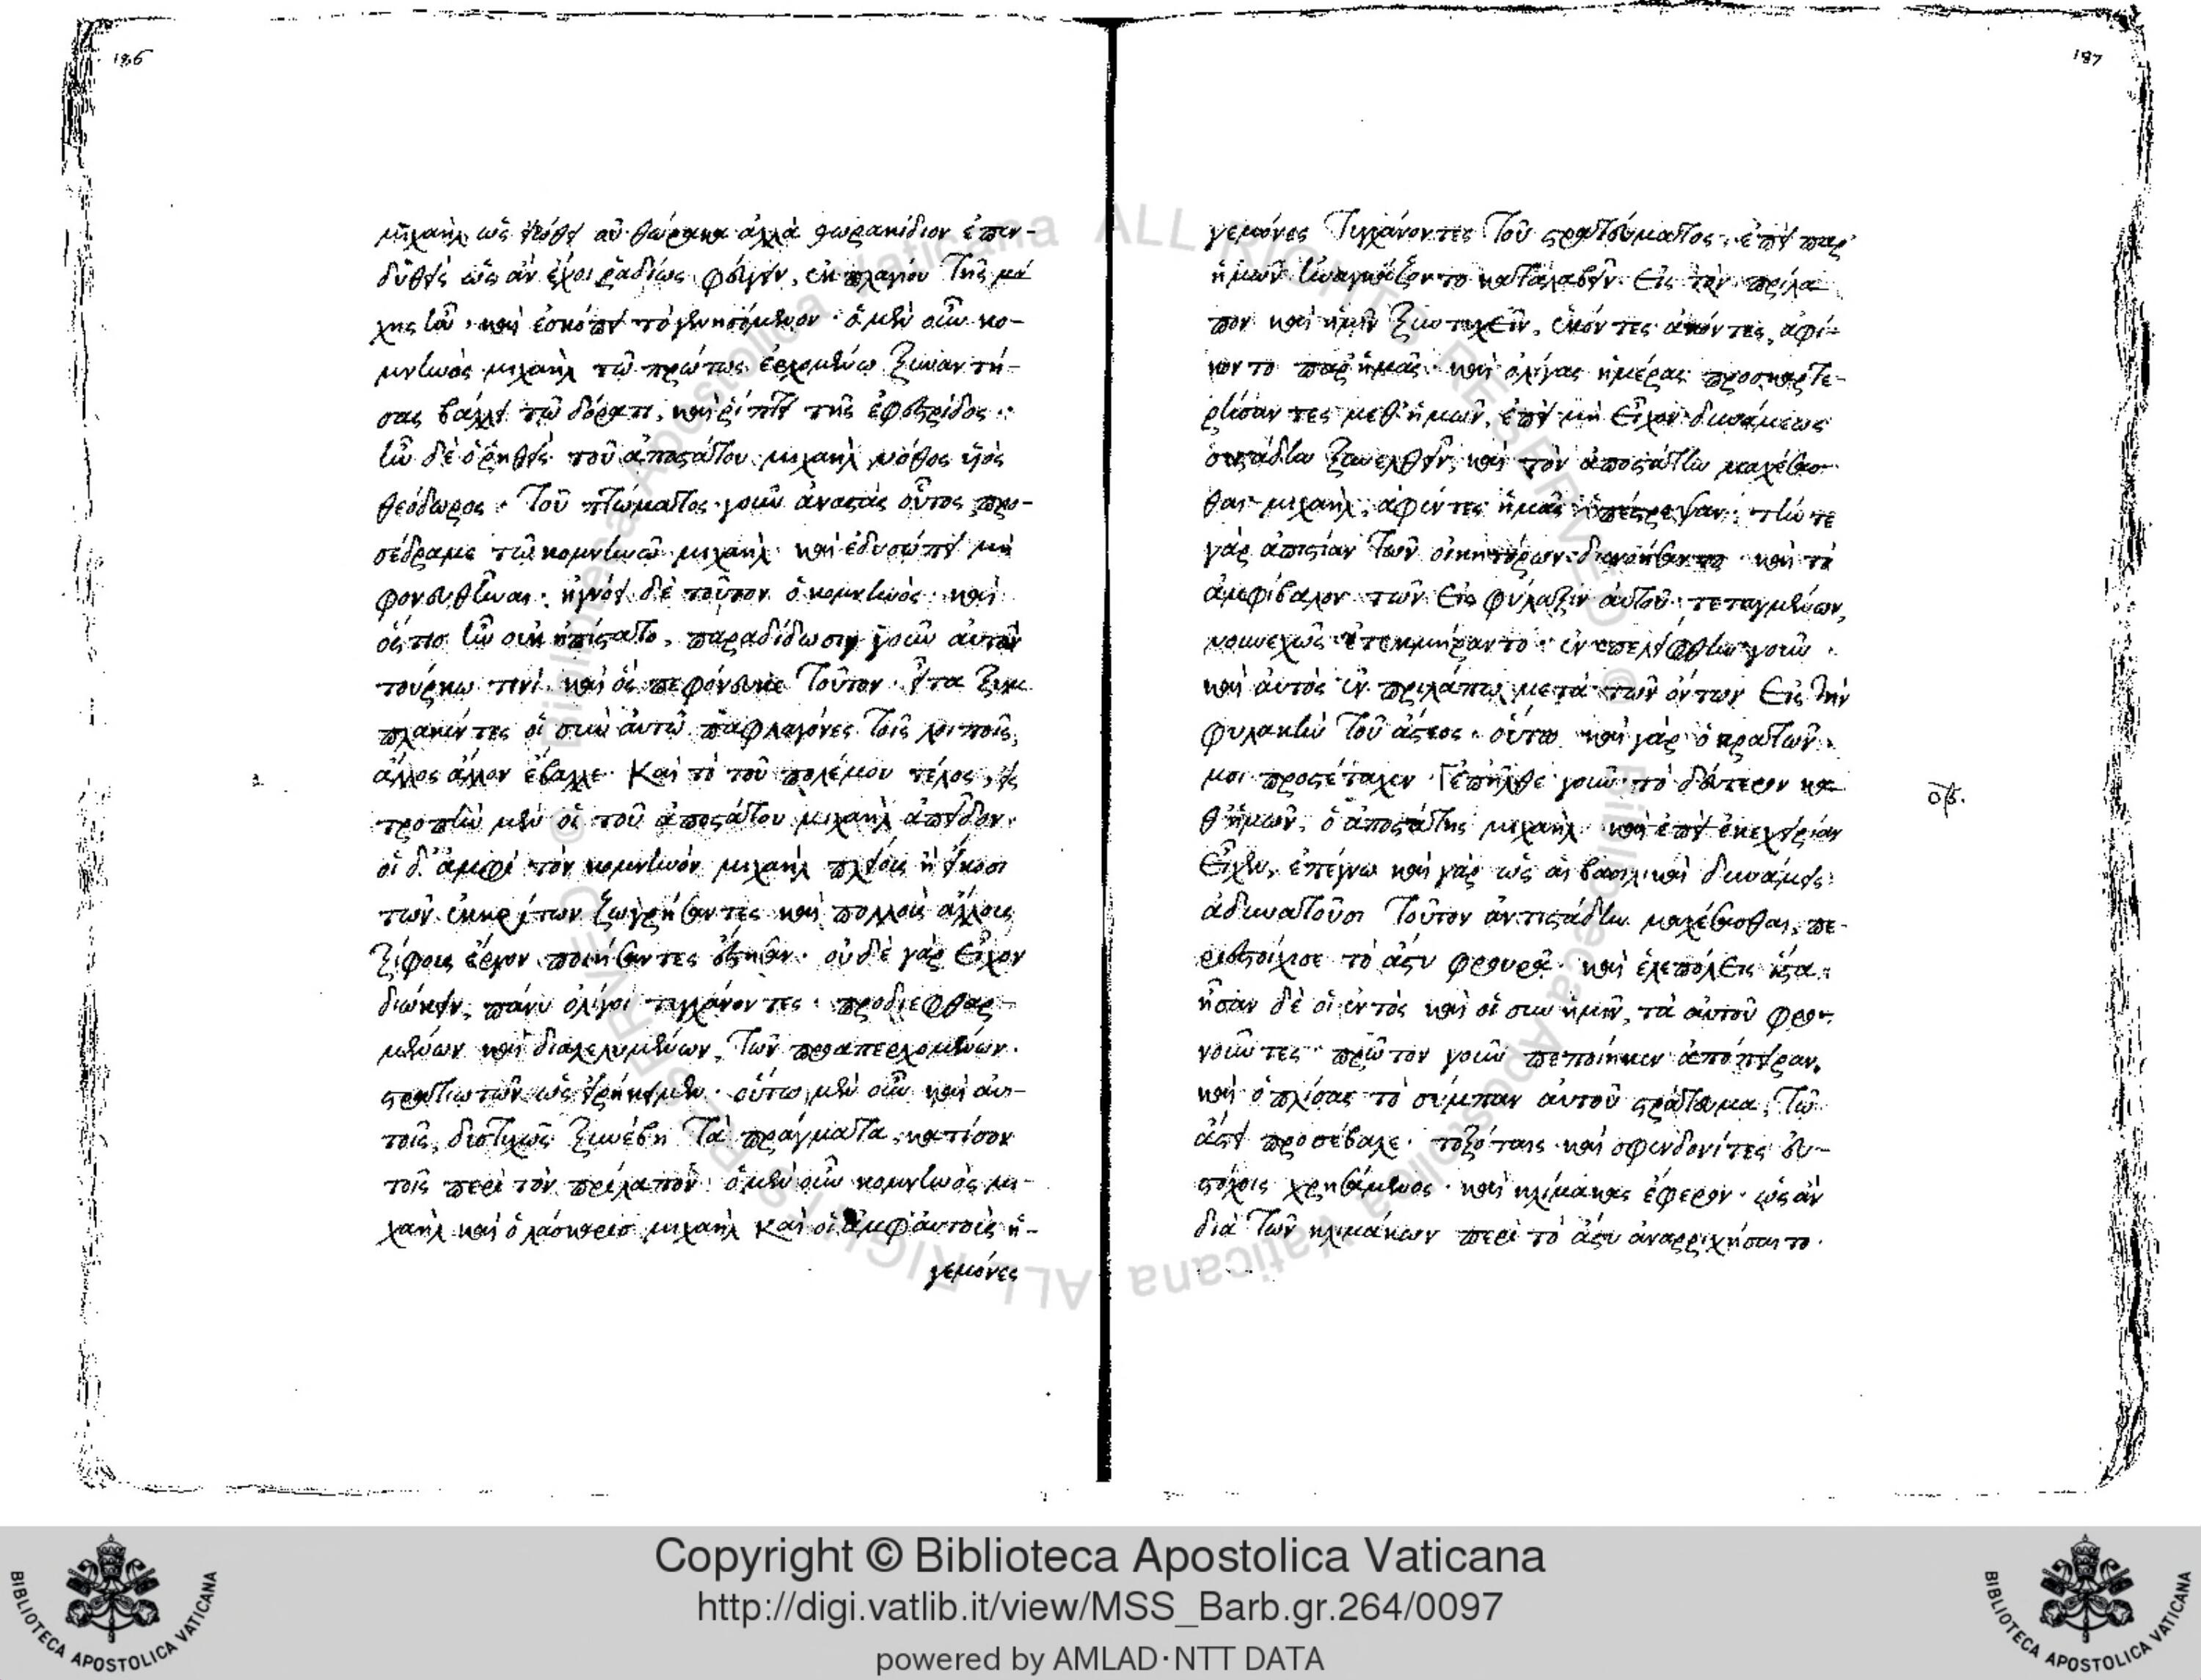 186
μιχαὴλ ὡς εἰώθει οὐ θώρακα ἀλλὰ θωρακίδιον ἐπεν-
δυθεὶς ὡς ἂν ἔχοι ῥαδίως φεύγειν, ἐκ πλαγίου τῆς μά
χης ἦν· καὶ ἐσκόπει τὸ γενησόμενον· ὁ μὲν οὖν κο-
μνηνὸς μιχαὴλ τῶ πρώτως ἐρχομένω ξυναντή-
σας βάλλει τῶ δόρατι, καὶ ῥίπτει τῆς ἐφεστρίδος·
ἦν δὲ ὁ ῥηθεὶς τοῦ ἀποστάτου μιχαὴλ νόθος υἱὸς
θεόδωρος· τοῦ πτώματος γοῦν ἀναστὰς οὗτος προ-
σέδραμε τῶ κομνηνῶ μιχαὴλ· καὶ ἐδυσώπει μὴ
φονευθῆναι· ἠγνόει δὲ τοῦτον ὁ κομνηνὸς· καὶ
ὅστις ἦν οὐκ ἠπίστατο, παραδίδωσιν γοῦν αὐτὸν
τούρκω τινὶ, καὶ ὃς πεφόνευκε τοῦτον· εἶτα ξυμ
πλακέντες οἱ σὺν αὐτῶ παφλαγόνες τοῖς λοιποῖς,
ἄλλος ἄλλον ἔβαλλε· καὶ τὸ τοῦ πολέμου τέλος, εἰς
τροπὴν μὲν οἱ τοῦ ἀποστάτου μιχαὴλ ἀπεῖδον·
οἱ δ' ἀμφὶ τὸν κομνηνὸν μιχαὴλ πλείους ἢ εἴκοσι
τῶν ἐκκρίτων ζωγρήσαντες καὶ πολλοὺς ἄλλους
ξίφους ἔργον ποιήσαντες ἔστησαν· οὐδὲ γὰρ εἶχον
διώκειν, πάνυ ὀλίγοι τυγχάνοντες· προδιεφθαρ-
μένων καὶ διαλελυμένων, τῶν προαπερχομένων
στρατιωτῶν ὡς εἰρήκειμεν· οὕτω μὲν οὖν καὶ αὐ-
τοῖς, δυστυχῶς ξυνέβη τὰ πράγματα, κατίσον
τοῖς περὶ τὸν πρίλαπον· ὁ μὲν οὖν κομνηνὸς μι-
χαὴλ καὶ ὁ λάσκαρις μιχαὴλ καὶ οἱ ἀμφ' αὐτοὺς ἡ-
γεμόνες
187
γεμόνες τυγχάνοντες τοῦ στρατεύματος, ἐπεὶ παρ'
ἡμῶν ἠναγκάζοντο καταλαβεῖν εἰς τὸν πρίλα
πον καὶ ἡμῖν ξυντυχεῖν, ἑκόντες ἄκοντες, ἀφί-
κοντο παρ' ἡμᾶς· καὶ ὀλίγας ἡμέρας προσκαρτε-
ρήσαντες μεθ' ἡμῶν, ἐπεὶ μὴ εἶχον δυνάμεως
συστάδην ξυνελθεῖν, καὶ τὸν ἀποστάτην μαχέσασ
θαι μιχαὴλ, ἀφέντες ἡμᾶς ὑπέστρεψαν· τήν τε
γὰρ ἀπιστίαν τῶν οἰκητόρων διενοήσαντο· καὶ τὸ
ἀμφίβαλον τῶν εἰς φύλαξιν αὐτοῦ τεταγμένων,
νουνεχῶς ἐτεκμήραντο· ἐναπελείφθην γοῦν
καὶ αὐτὸς ἐν πριλάπω μετὰ τῶν ὄντων εἰς τὴν
φυλακὴν τοῦ ἄστεος· οὕτω καὶ γὰρ ὁ κρατῶν
μοι προσέταξεν· ἐπῆλθε γοῦν τὸ δεύτερον κα
θ' ἡμῶν, ὁ ἀποστάτης μιχαὴλ· καὶ ἐπεὶ ἐκεχειρίαν
οβ.
εἶχεν, ἐπέγνω καὶ γὰρ ὡς αἱ βασιλικαὶ δυνάμεις
ἀδυνατοῦσι τοῦτον ἀντιστάδην μαχέσασθαι, πε-
ριεστοίχισε τὸ ἄστυ φρουρᾶ· καὶ ἑλεπόλεις ἵστα·
ἦσαν δὲ οἱ ἐντὸς καὶ οἱ σὺν ἡμῖν, τὰ αὐτοῦ φρο-
νοῦντες· πρῶτον γοῦν πεποίηκεν ἀπόπειραν,
καὶ ὁπλίσας τὸ σύμπαν αὐτοῦ στράτευμα, τῶ
ἄστει προσέβαλε· τοξόταις καὶ σφενδονίτες εὐ-
στόχοις χρησάμενος· καὶ κλίμακας ἔφερον· ὡς ἂν
διὰ τῶν κλιμάκων περὶ τὸ ἄστυ ἀναρριχήσαιτο·
Copyright © Biblioteca Apostolica Vaticana
http://digi.vatlib.it/view/MSS_Barb.gr.264/0097
powered by AMLAD·NTT DATA
BIBLIOTECA APOSTOLICA VATICANA
BIBLIOTECA APOSTOLICA VATICANA